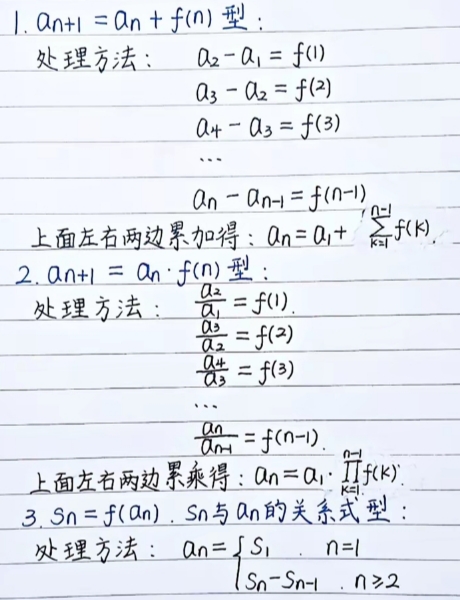 1. an+1 = an + f(n) 型：
处理方法： a2 - a1 = f(1)
a3 - a2 = f(2)
a4 - a3 = f(3)
...
an - an-1 = f(n-1)
上面左右两边累加得：an = a1 + ∑_{k=1}^{n-1} f(k).
2. an+1 = an · f(n) 型：
处理方法： a2/a1 = f(1).
a3/a2 = f(2)
a4/a3 = f(3)
...
an/an-1 = f(n-1).
上面左右两边累乘得：an = a1 · ∏_{k=1}^{n-1} f(k).
3. Sn = f(an) . Sn与an的关系式型：
处理方法： an = { S1 . n=1
Sn - Sn-1 . n≥2